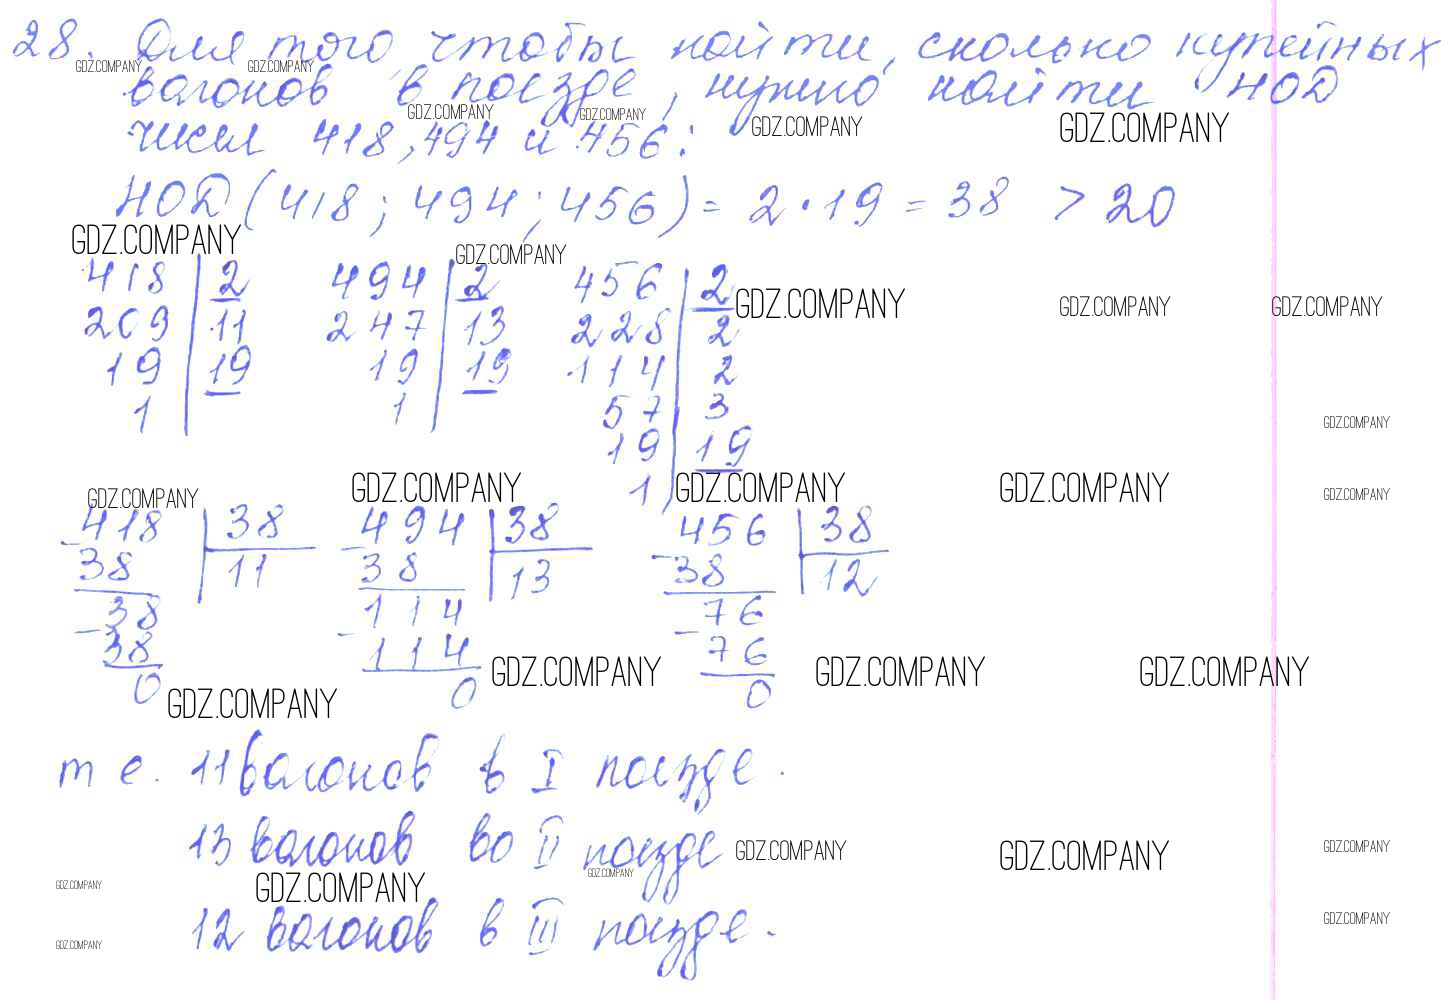 28. Для того, чтобы найти, сколько купейных
GDZ.COMPANY GDZ.COMPANY
вагонов в поезде, нужно найти НОД
GDZ.COMPANY GDZ.COMPANY GDZ.COMPANY GDZ.COMPANY
чисел 418, 494 и 456:
НОД (418; 494; 456) = 2 · 19 = 38 > 20
GDZ.COMPANY GDZ.COMPANY
418 | 2 494 | 2 456 | 2
GDZ.COMPANY GDZ.COMPANY GDZ.COMPANY
209 | 11 247 | 13 228 | 2
19 | 19 19 | 19 114 | 2
1 1 57 | 3
GDZ.COMPANY
19 | 19
1
GDZ.COMPANY GDZ.COMPANY GDZ.COMPANY GDZ.COMPANY GDZ.COMPANY
418 | 38 494 | 38 456 | 38
- 38 | 11 - 38 | 13 - 38 | 12
38 114 76
- 38 - 114 - 76
0 0 0
GDZ.COMPANY GDZ.COMPANY GDZ.COMPANY GDZ.COMPANY
т е. 11 вагонов в I поезде.
13 вагонов во II поезде
GDZ.COMPANY GDZ.COMPANY GDZ.COMPANY
GDZ.COMPANY GDZ.COMPANY GDZ.COMPANY
12 вагонов в III поезде.
GDZ.COMPANY GDZ.COMPANY